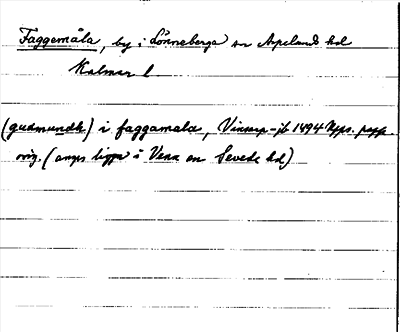 Faggemåla, by i Lönneberga sn Aspelands hd
Kalmar l
(gudmundh) i faggamala, Vinsarp-jb 1494 Upps. papp
orig. (anges ligga i Vena sn Sevede hd)